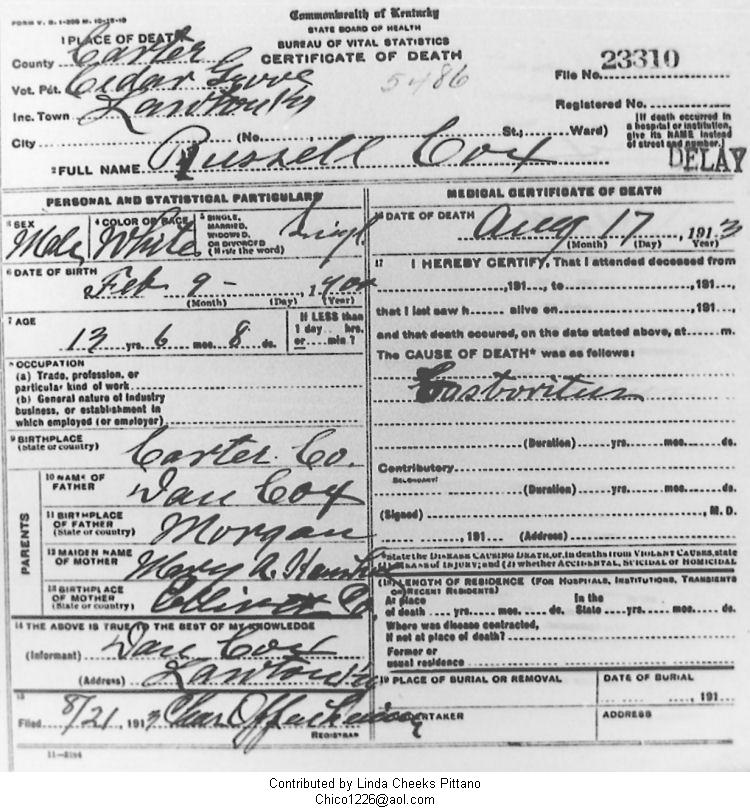 FORM V. S. 1-200 M. 10-15-10
Commonwealth of Kentucky
STATE BOARD OF HEALTH
BUREAU OF VITAL STATISTICS
CERTIFICATE OF DEATH
1 PLACE OF DEATH
County Carter
Vot. Pct. Cedar Grove
Inc. Town Lawton Ky
City (No. St.; Ward)
5486
File No. 23310
Registered No.
[If death occurred in
a hospital or institution,
give its NAME instead
of street and number.]
DELAY
2 FULL NAME Russell Cox
PERSONAL AND STATISTICAL PARTICULARS
3 SEX Male
4 COLOR OR RACE White
5 SINGLE, MARRIED, WIDOWED, OR DIVORCED (Write the word) Singl
6 DATE OF BIRTH
Feb 9 - 1900
(Month) (Day) (Year)
7 AGE
13 yrs. 6 mos. 8 ds.
If LESS than
1 day hrs.
or min?
8 OCCUPATION
(a) Trade, profession, or
particular kind of work
(b) General nature of industry
business, or establishment in
which employed (or employer)
9 BIRTHPLACE
(State or country) Carter Co.
PARENTS
10 NAME OF
FATHER Dan Cox
11 BIRTHPLACE
OF FATHER
(State or country) Morgan
12 MAIDEN NAME
OF MOTHER Mary A.
13 BIRTHPLACE
OF MOTHER
(State or country) Co
14 THE ABOVE IS TRUE TO THE BEST OF MY KNOWLEDGE
(Informant) Dan Cox
(Address) Lawton Ky
15
Filed 8/21, 1913
REGISTRAR
11-3184
MEDICAL CERTIFICATE OF DEATH
16 DATE OF DEATH
Aug 17, 1913
(Month) (Day) (Year)
17 I HEREBY CERTIFY, That I attended deceased from
, 191 , to , 191 ,
that I last saw h alive on , 191 ,
and that death occured, on the date stated above, at m.
The CAUSE OF DEATH* was as follows:
(Duration) yrs. mos. ds.
Contributory
SECONDARY
(Duration) yrs. mos. ds.
(Signed) , M. D.
, 191 (Address)
*State the DISEASE CAUSING DEATH, or, in deaths from VIOLENT CAUSES, state
MEANS OF INJURY; and (2) whether ACCIDENTAL, SUICIDAL or HOMICIDAL
(18) LENGTH OF RESIDENCE (FOR HOSPITALS, INSTITUTIONS, TRANSIENTS
OR RECENT RESIDENTS)
At place In the
of death yrs. mos. ds. State yrs. mos. ds.
Where was disease contracted,
if not at place of death?
Former or
usual residence
19 PLACE OF BURIAL OR REMOVAL
DATE OF BURIAL
, 191
UNDERTAKER
ADDRESS
Contributed by Linda Cheeks Pittano
Chico1226@aol.com